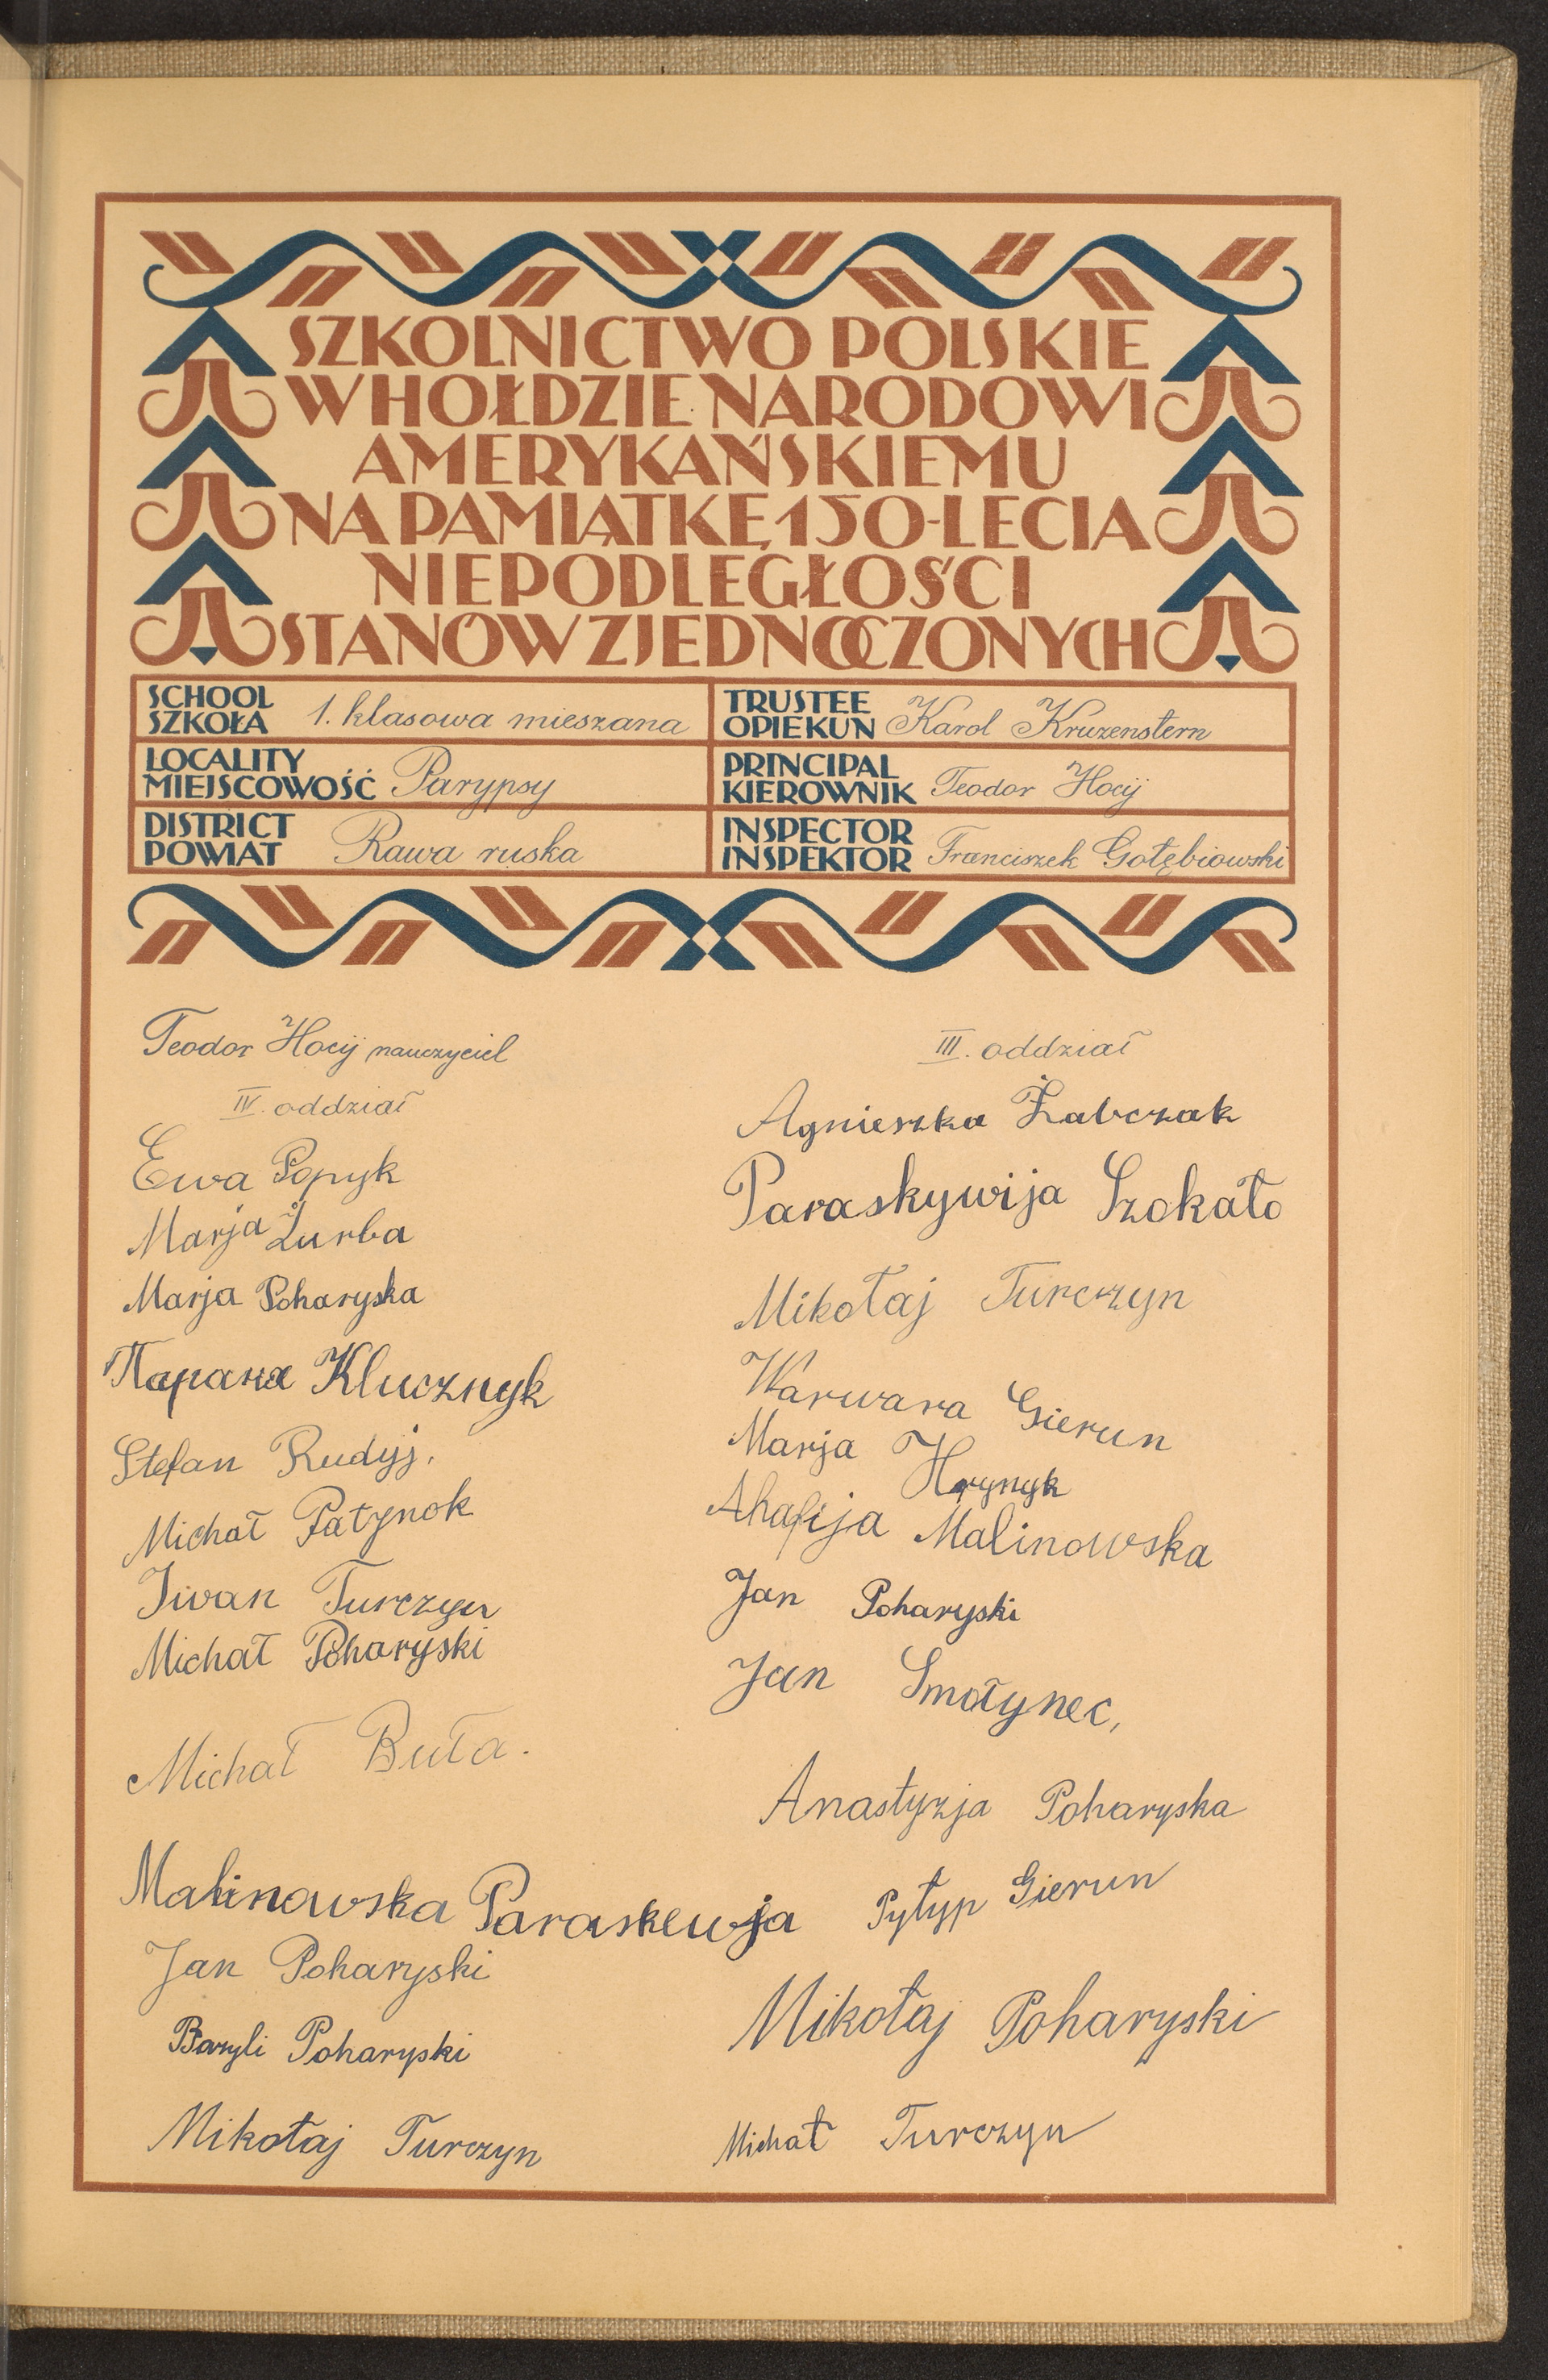 SZKOLNICTWO POLSKIE
W HOŁDZIE NARODOWI
AMERYKAŃSKIEMU
NA PAMIĄTKĘ 150-LECIA
NIEPODLEGŁOŚCI
STANÓW ZJEDNOCZONYCH
SCHOOL
SZKOŁA 1. klasowa mieszana
LOCALITY
MIEJSCOWOŚĆ Parypsy
DISTRICT
POWIAT Rawa ruska
TRUSTEE
OPIEKUN Karol Kruzenstern
PRINCIPAL
KIEROWNIK Teodor Hocij
INSPECTOR
INSPEKTOR Franciszek Gołębiowski
Teodor Hocij nauczyciel
IV. oddział
Ewa Popyk
Marja Żurba
Marja Poharyska
Парана Klucznyk
Stefan Rudyj.
Michał Patynok
Iwan Turczyn
Michał Poharyski
Michał Buła.
Malinowska Paraskewja
Jan Poharyski
Bazyli Poharyski
Mikołaj Turczyn
III. oddział
Agnieszka Żabczak
Paraskywija Szokało
Mikołaj Turczyn
Warwara Gierun
Marja Hrynyk
Ahafija Malinowska
Jan Poharyski
Jan Smołynec,
Anastyzja Poharyska
Pyłyp Gierun
Mikołaj Poharyski
Michał Turczyn